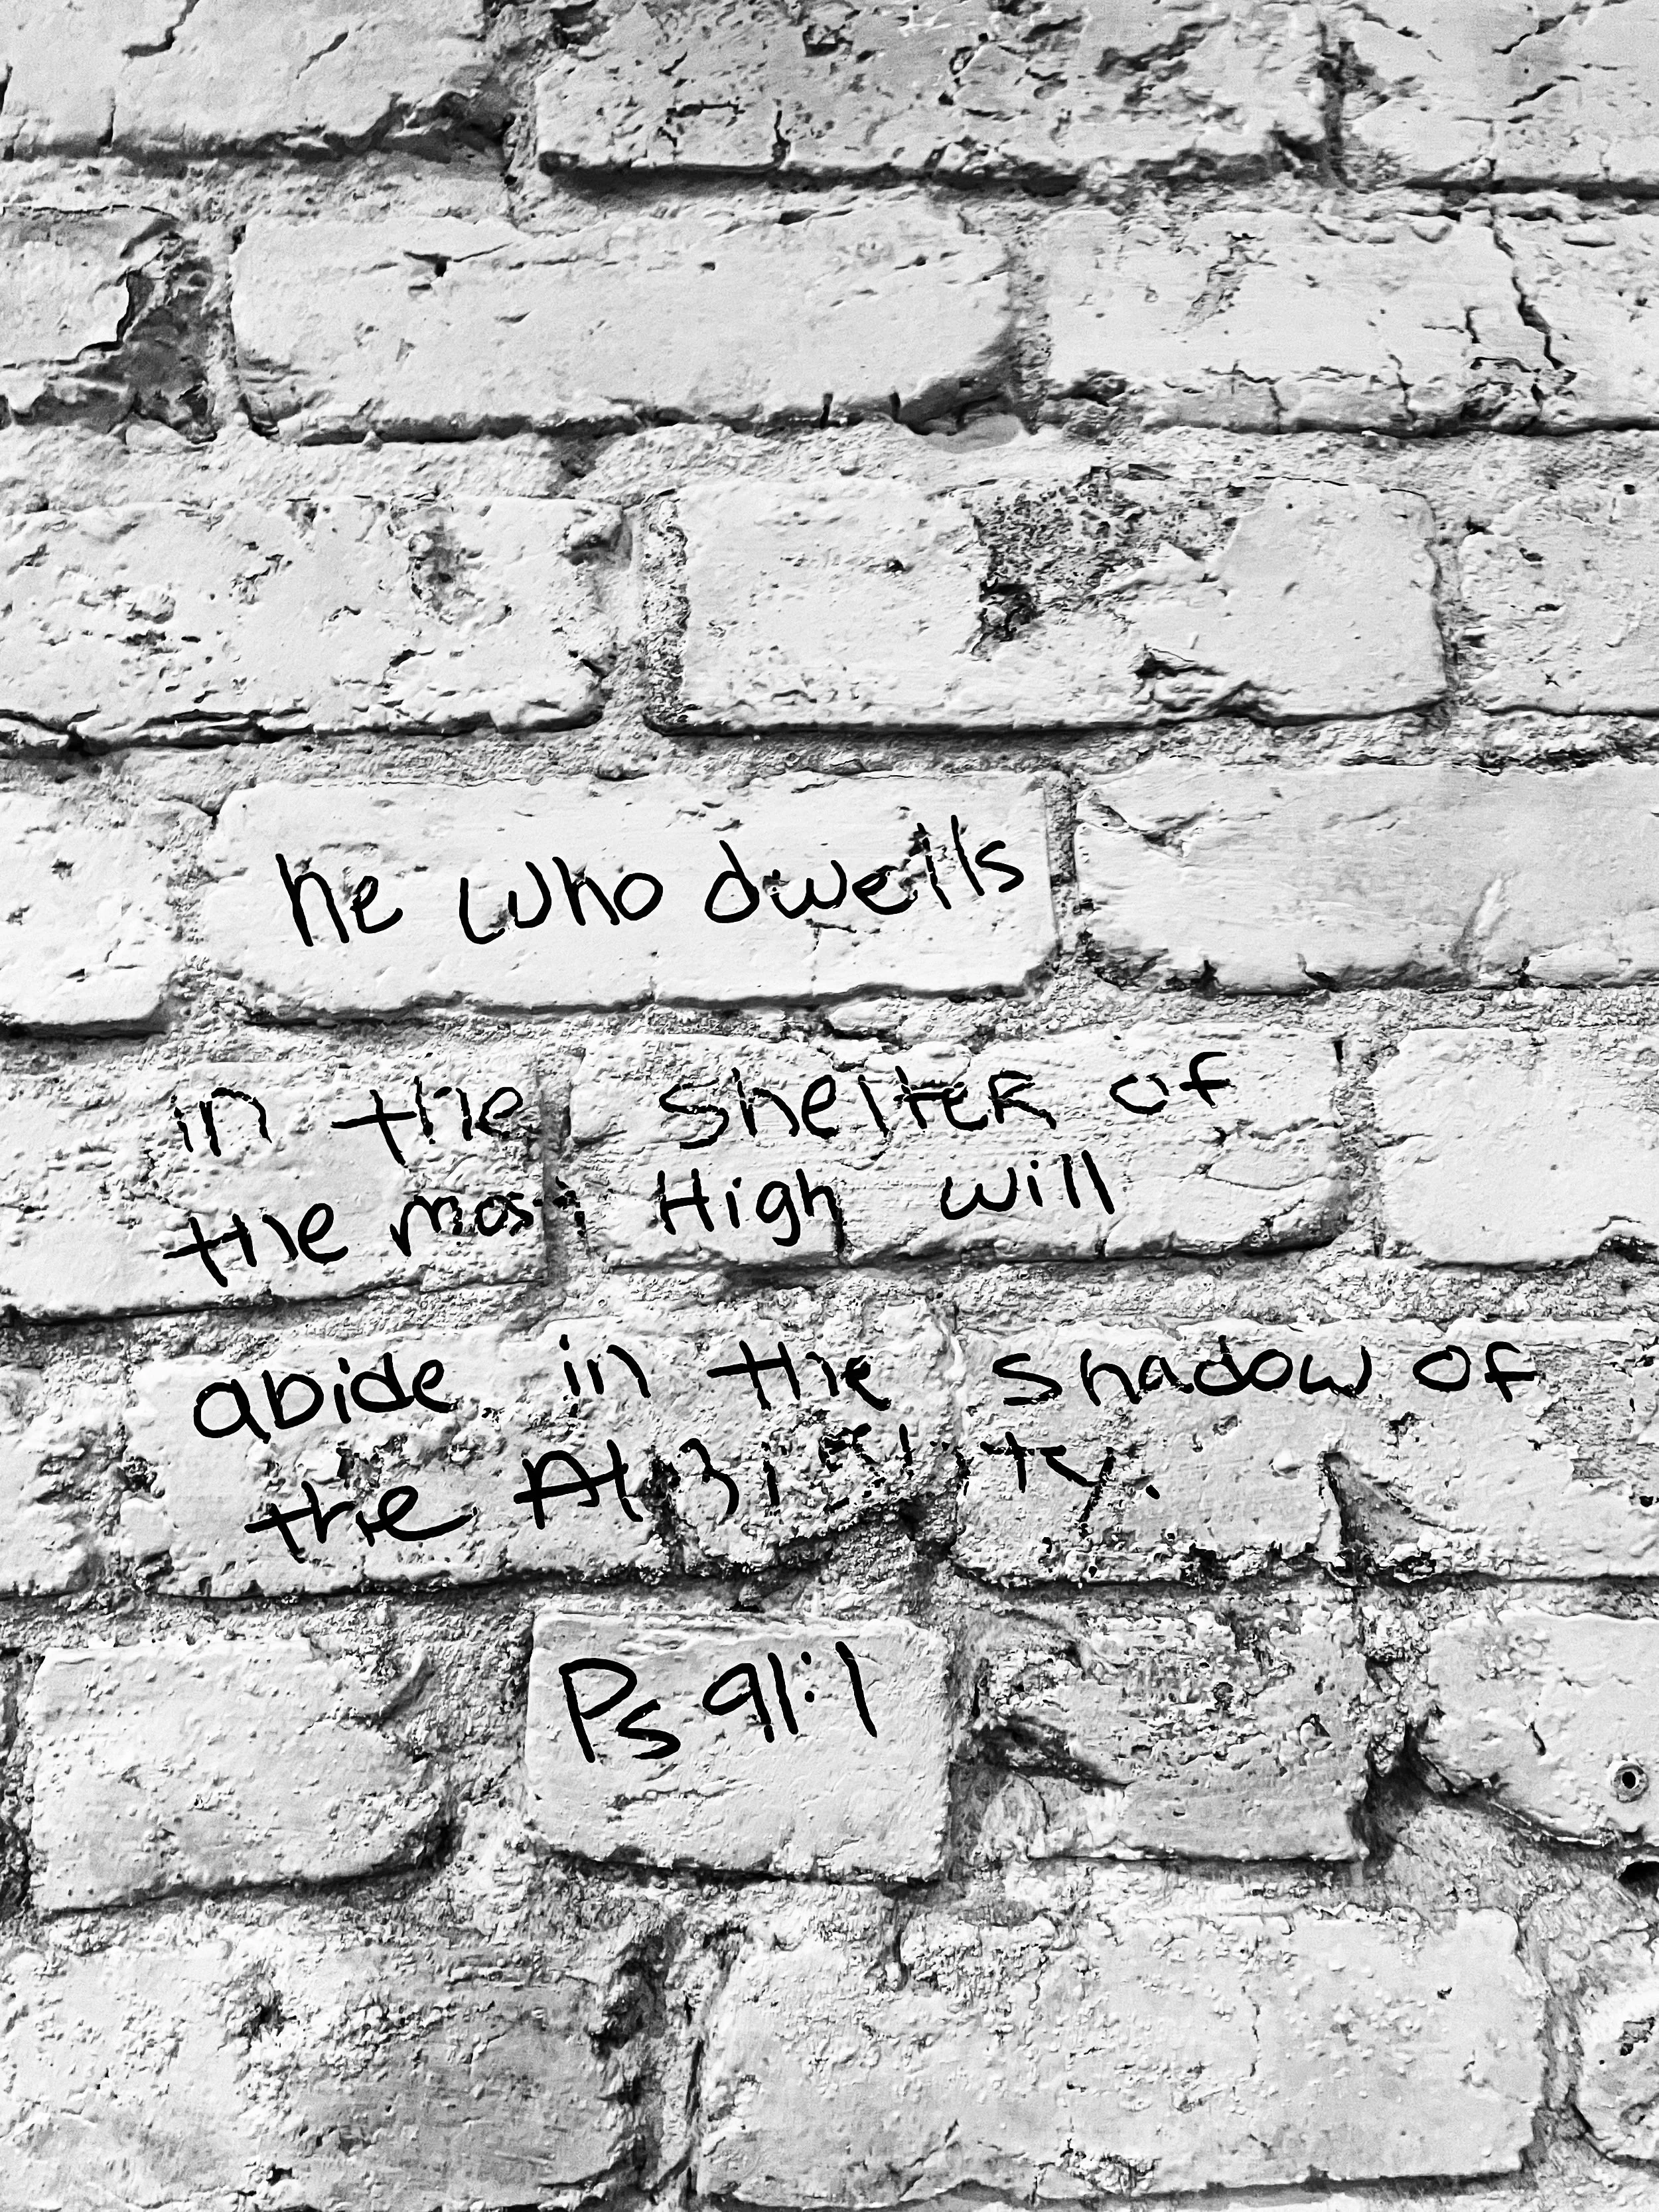 he who dwells
in the shelter of
the most High will
abide in the shadow of
the Almighty.
Ps 91:1